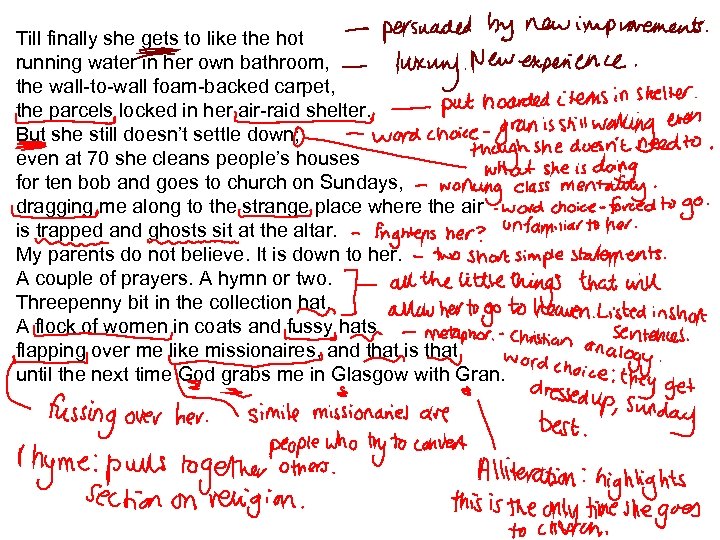 Till finally she gets to like the hot — persuaded by new improvements.
running water in her own bathroom, — luxury. New experience.
the wall-to-wall foam-backed carpet,
the parcels locked in her air-raid shelter. — put hoarded items in shelter.
But she still doesn't settle down; — word choice - gran is still working even
though she doesn't need to.
even at 70 she cleans people's houses what she is doing
for ten bob and goes to church on Sundays, – working class mentality.
dragging me along to the strange place where the air - word choice - forced to go.
unfamiliar to her.
is trapped and ghosts sit at the altar. - frightens her?
My parents do not believe. It is down to her. – two short simple statements.
A couple of prayers. A hymn or two. all the little things that will
Threepenny bit in the collection hat. allow her to go to Heaven. Listed in short
sentences.
A flock of women in coats and fussy hats – metaphor. - Christian analogy.
flapping over me like missionaires, and that is that,
word choice: they get
until the next time God grabs me in Glasgow with Gran.
dressed up, sunday
best.
fussing over her. simile missionaries are
people who try to convert
others.
Rhyme: pulls together
section on religion.
Alliteration: highlights
this is the only time she goes
to church.